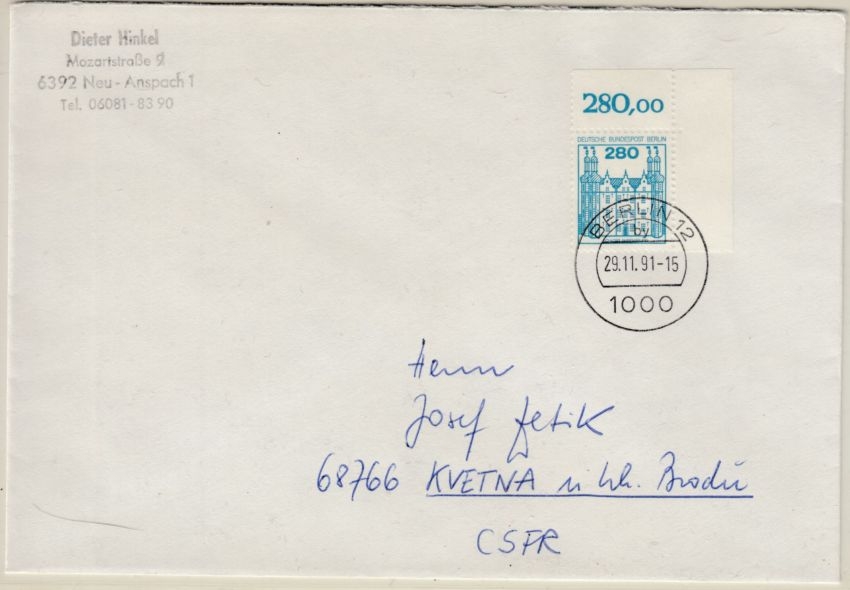 Dieter Hinkel
Mozartstraße 9
6392 Neu-Anspach 1
Tel. 06081-8390
280,00
DEUTSCHE BUNDESPOST BERLIN
280
BERLIN 12
by
29.11.91-15
1000
Herrn
Josef Jetik
68766 KVETNA u Uh. Brodu
CSFR